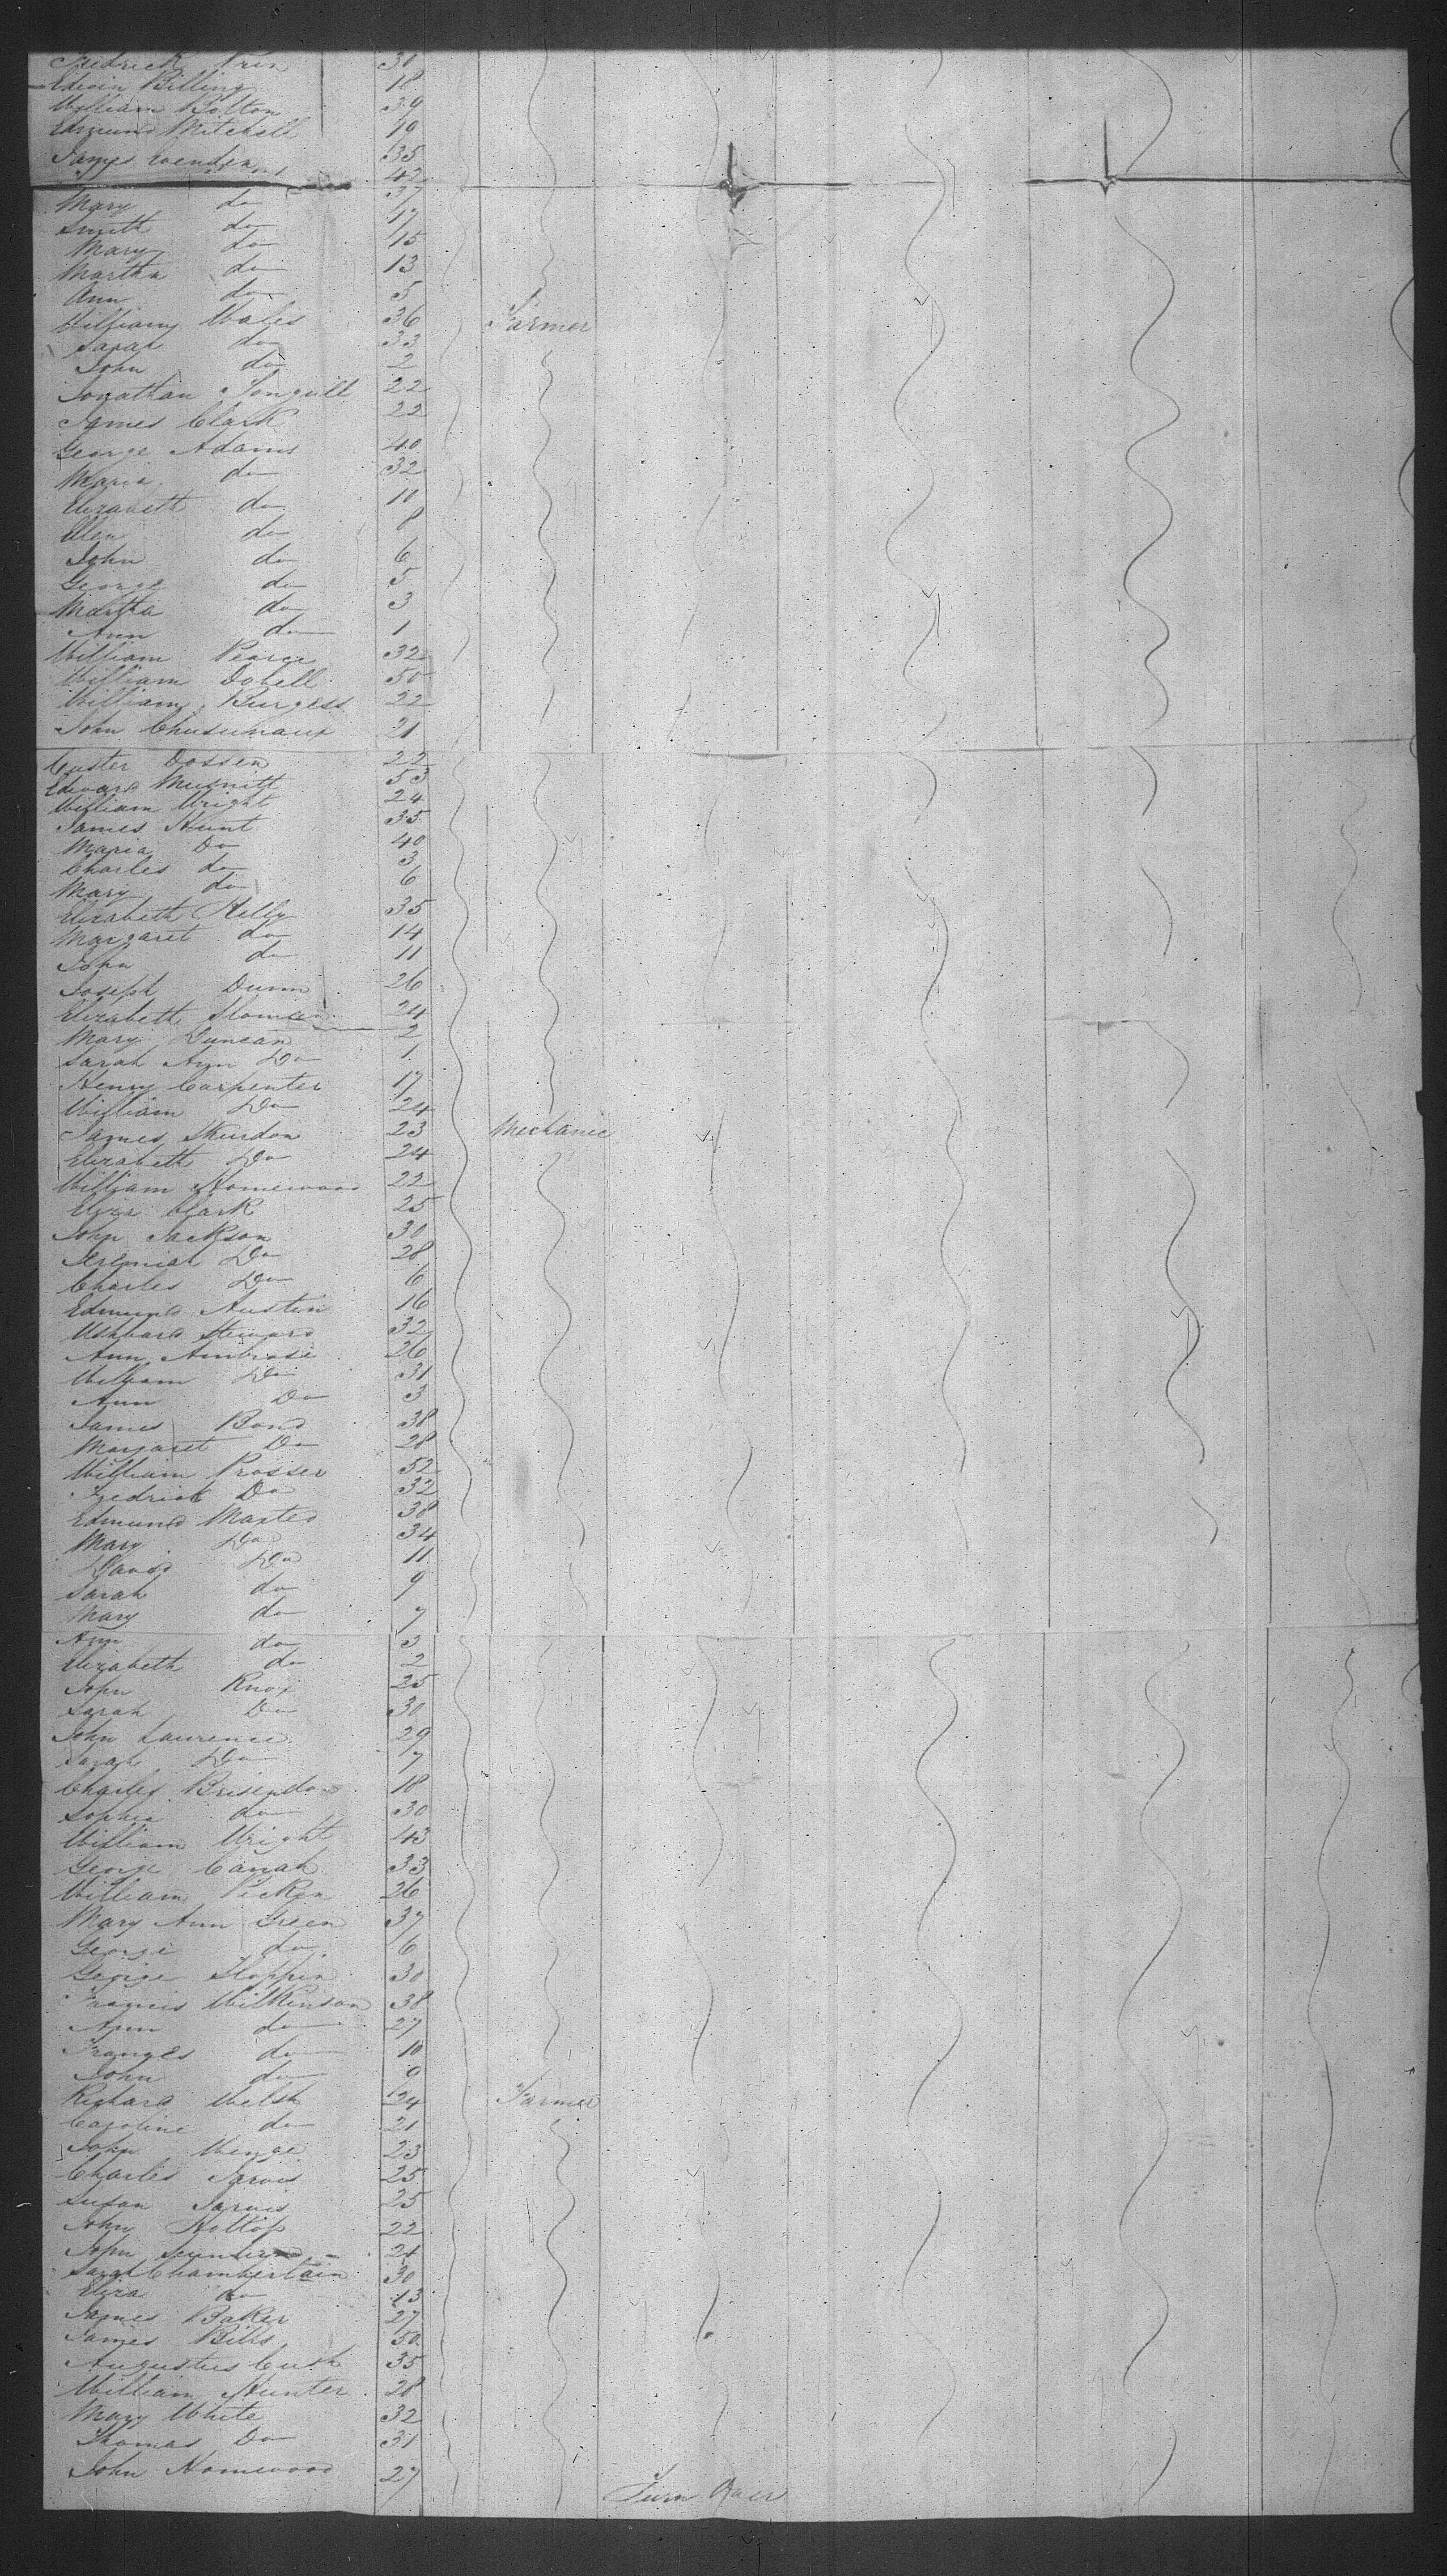 Fredrick 30
Edwin Billing 18
William Bolton 39
Edmund Mitchell 19
James 35
42
Mary do 37
Smith do 17
Mary do 15
Martha do 13
Ann do 5
William Wales 36 Farmer
Sarah do 33
John do 2
Jonathan 22
James Clark 22
George Adams 40
Maria do 32
Elizabeth do 10
Ellen do 8
John do 6
George do 5
Martha do 3
Ann do 1
William Pearce 32
William Dobell 50
William Burgess 22
John 21
Custer Dossen 22
Edward 53
William Wright 24
James Hunt 35
Maria Do 40
Charles do 3
Mary do 6
Elizabeth 35
Margaret do 14
John do 11
Joseph Dunn 26
Elizabeth 24
Mary Duncan 2
Sarah Ann Do 1
Henry Carpenter 17
William Do 24
James Skurdon 23 Mechanic
Elizabeth Do 24
William Homewood 22
Eliza Clark 25
John Jackson 30
Jeremiah Do 28
Charles Do 6
Edmund Austin 16
Steward 32
Ann Ambrose 26
William Do 31
Ann Do 3
James Bond 38
Margaret Do 28
William Prosser 52
Fredrick Do 32
Edmund Masted 38
Mary Do 34
David Do 11
Sarah do 9
Mary do 7
Ann do 3
Elizabeth do 2
John Knox 25
Sarah Do 30
John Laurence 29
Sarah Do 7
Charles Brisendon 18
Sophia do 30
William Wright 43
George Canah 33
William Picken 26
Mary Ann Green 37
George do 6
George Hoppin 30
Francis Wilkinson 38
Ann do 27
Frances do 10
John do 9
Richard Welsh 24 Farmer
Caroline do 21
John Wenge 23
Charles Jarvis 25
Susan Jarvis 25
John Holtop 22
John 24
Sarah Chamberlain 30
Eliza do 13
James Baker 27
James Bills 50
Augustus Cush 35
William Hunter 28
Mary White 32
Thomas Do 31
John Homewood 27
Turn Over